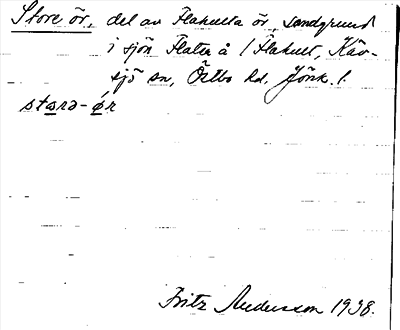 Store ör, del av Flahulta ör, sandgrund
i sjön Flaten å / Flahult, Käv-
sjö sn, Östbo hd, Jönk. l.
starə-ér
Fritz Andersson 1938.